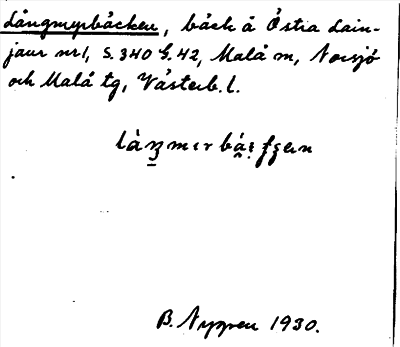 Långmyrbäcken, bäck å Östra Lain-
jaur nr 1, S. 340 G. 42, Malå sn, Norsjö
och Malå tg, Västerb. l.
B. Nygren 1930.